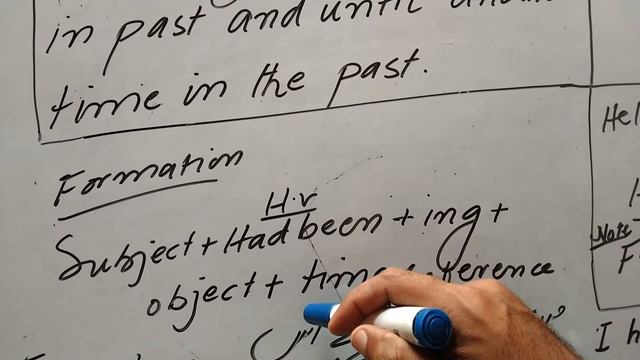 in past and until
time in the past.
Formation
H.v
Subject + Had been + ing +
object + time reference
Hel
Note
F
I h